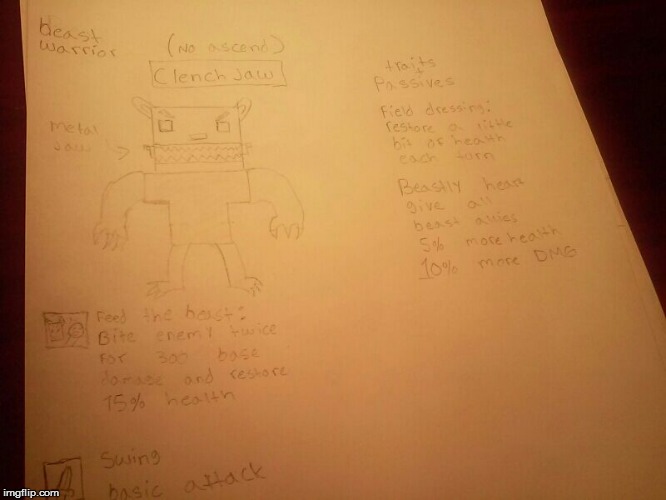 beast
warrior
(No ascend)
Clench Jaw
metal
Jaw
traits
Passives
Field dressing:
restore a little
bit of health
each turn
Beastly heart
give all
beast allies
5% more health
10% more DMG
Feed the beast:
Bite enemy twice
For 300 base
damage and restore
15% health
Swing
basic attack
imgflip.com